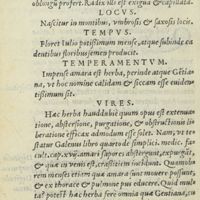 oblongū profert. Radix illi est exigua & capillata.
LOCVS.
Nascitur in montibus, vmbrosis & saxosis locis.
TEMPVS.
Floret Iulio potissimum mense, atque subinde
dentibus floribus semen producit.
TEMPERAMENTVM.
Impense amara est herba, perinde atque Gētia
na, vt hoc nomine calidam & siccam esse euiden
tissimum sit.
VIRES.
Hac herba haud dubiè quum opus est extenua
tione, abstersione, purgatione, & obstructionū li
beratione efficax admodum esse solet. Nam, vt te
statur Galenus libro quarto de simplici. medic. fa
cult. cap. xvij. amari sapores abstergunt, expurgāt,
& quæ in venis est, crassitiem incidunt. Quamob
rem menses etiam quæ amara sunt mouere possunt,
& ex thorace & pulmone pus educere. Quid mul
ta? potest hæc herba ferè omnia quæ Gentiana, cu